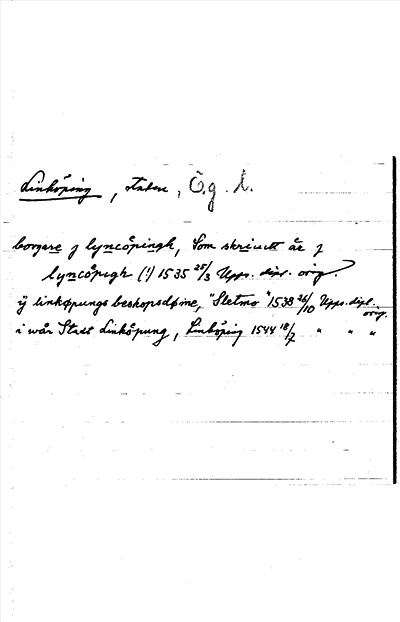 Linköping, staden, Ö.g. l.
borgare j lyncöpingh, Som skriuett är j
lyncöpigh (!) 1535 25/3 Upps. dipl. orig.
ÿ linköpungs beskopsdöme, "Sletmo" 1538 26/10 Upps. dipl. orig.
i wår Stadt Linköpung, Linköping 1544 18/7 " " "